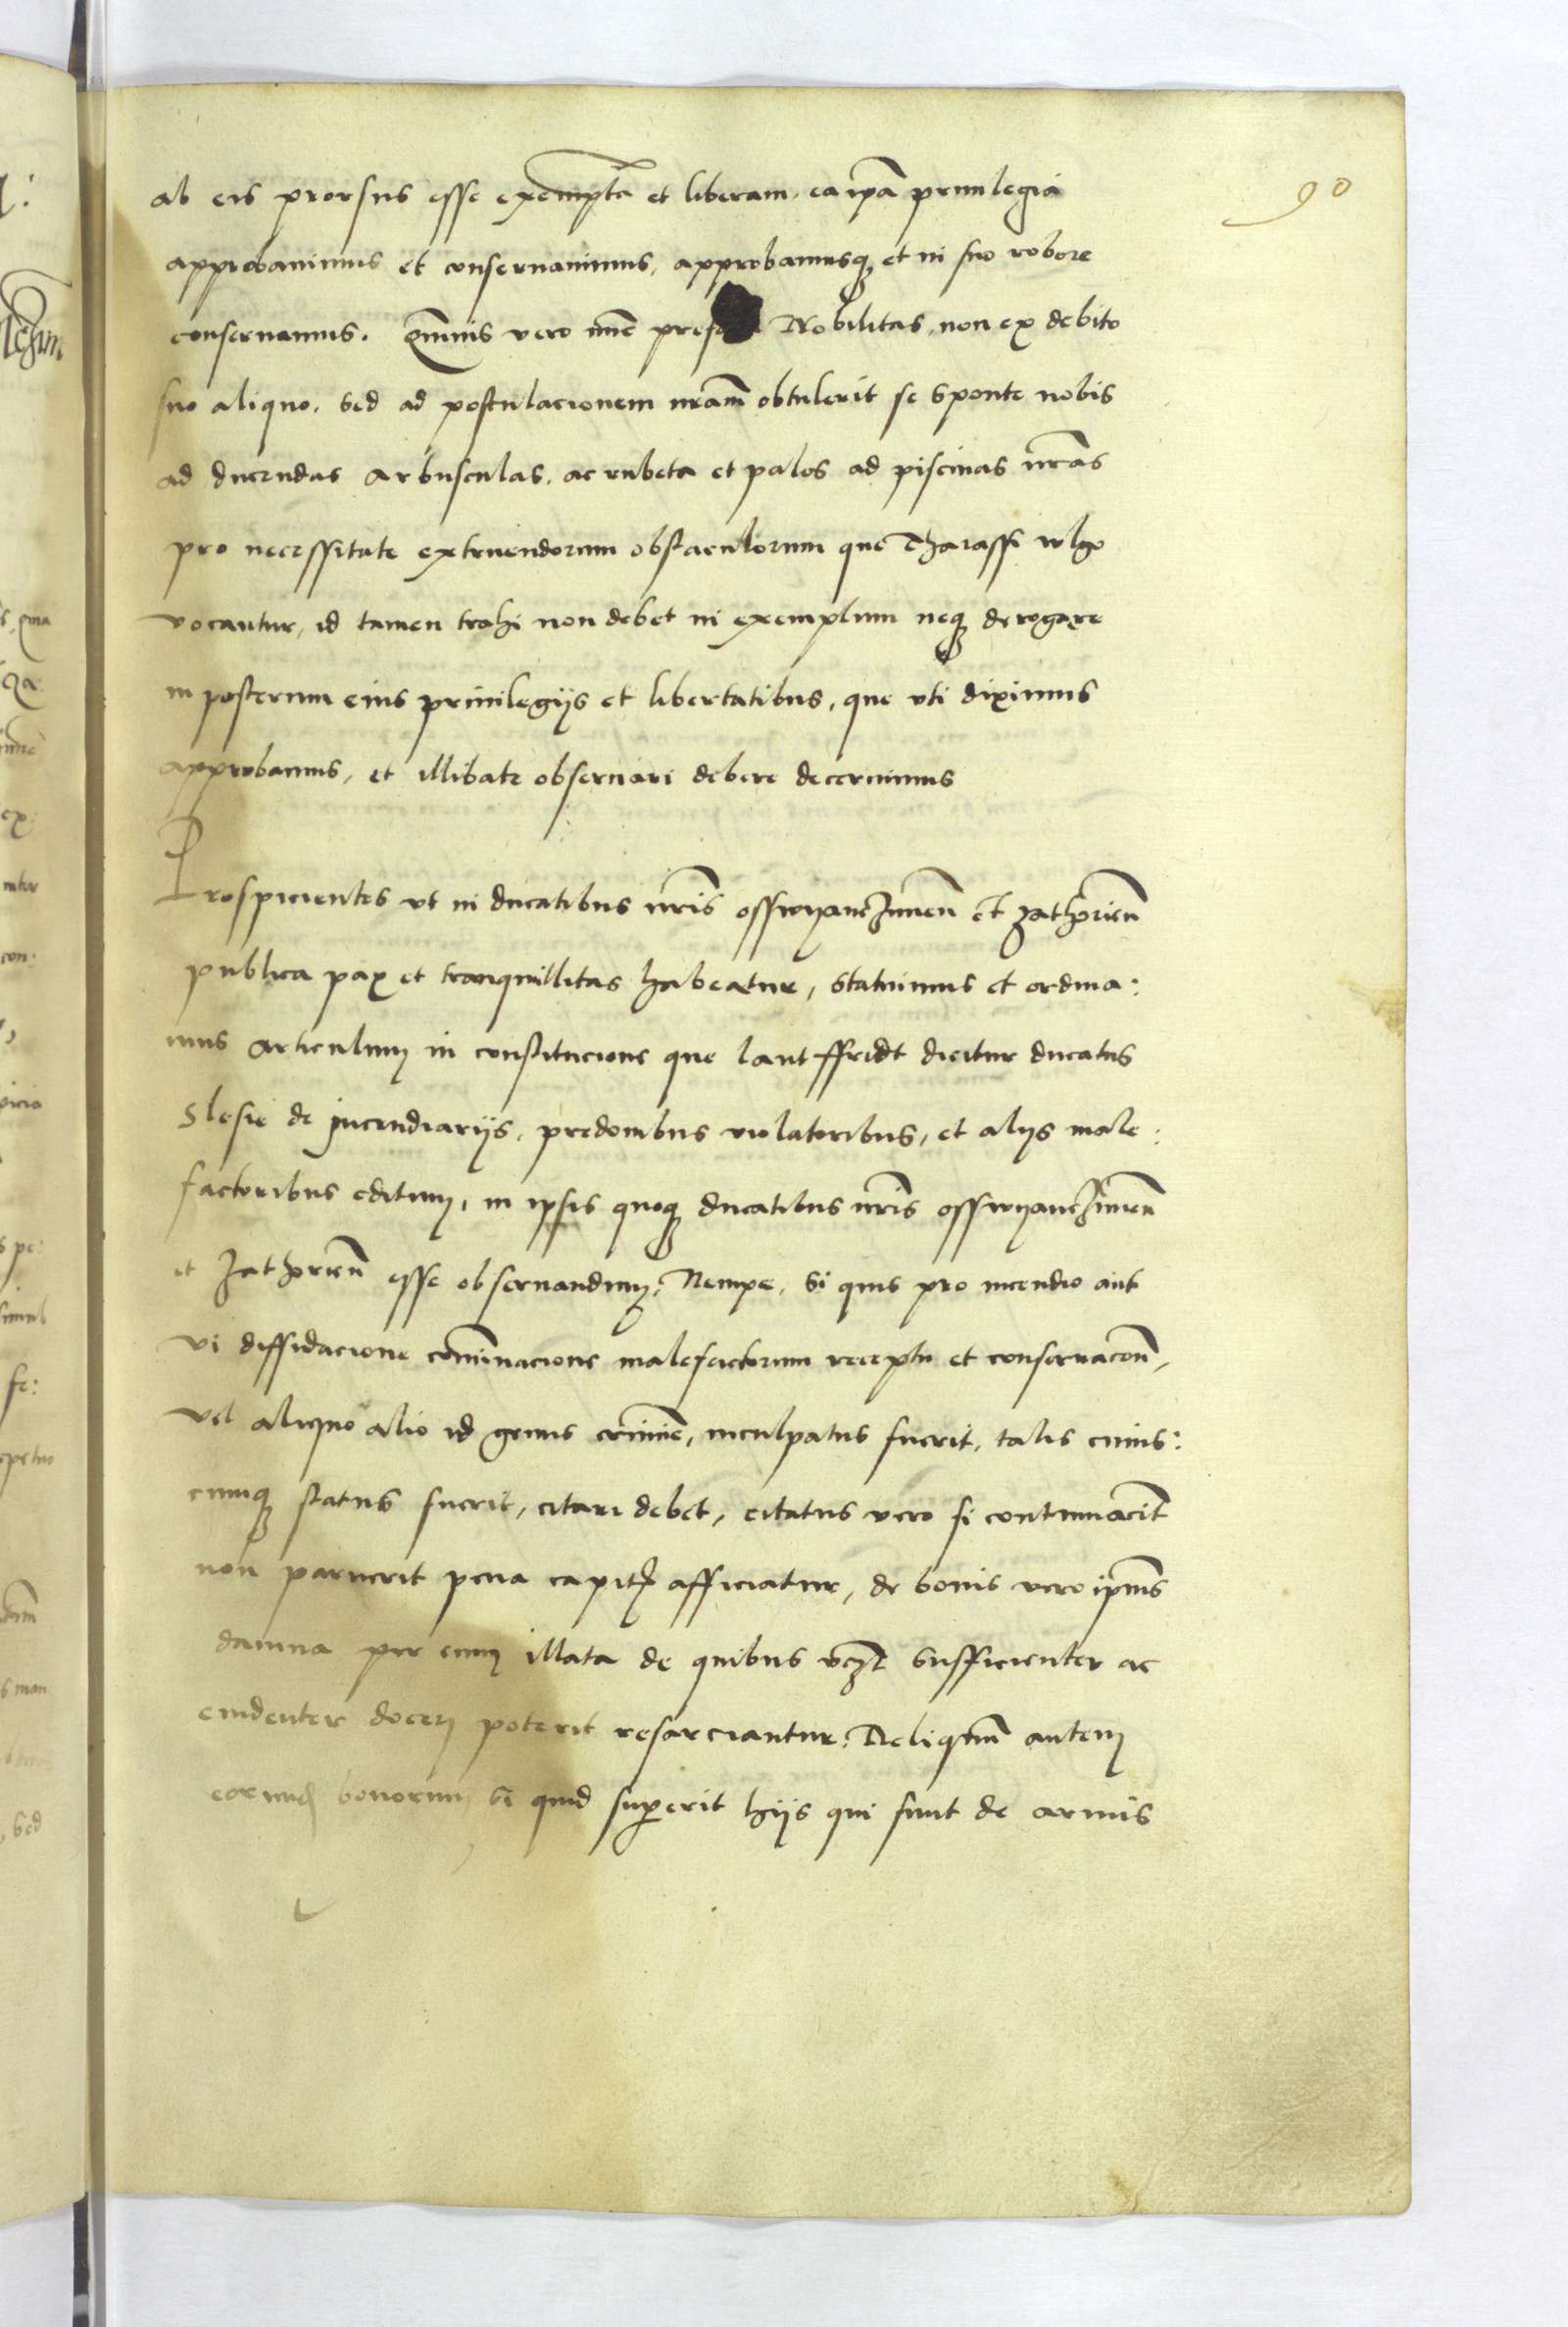 90
ab eis prorsus esse exempta et liberam, ea ipa priuilegia
approbauimus et conseruauimus, approbamusq et in suo robore
conseruamus. Quamuis vero nunc Nobilitas, non ex debito
suo aliquo, sed ad postulacionem nram obtulerit se sponte nobis
ad ducendas arbusculas, ac rubeta et palos ad piscinas nras
pro necessitate extruendorum obstaculorum que Tharassi wlgo
vocantur, id tamen trahi non debet in exemplum neq derogare
in posterum eius priuilegijs et libertatibus, que vti diximus
approbamus, et illibate obseruari debere decernimus
Prospicientes vt in ducatibus nris osswyanczimen et zathorien
publica pax et tranquillitas habeatur, statuimus et ordina:
mus articulum in constitucione que lantffridt dicitur ducatus
Slesie de Incendiarijs, predonibus violatoribus, et alijs male:
factoribus editum, in ipsis quoq ducatibus nris osswyanczimen
et Zathorien esse obseruandum, Nempe, si quis pro incendio aut
vi diffidacione cominacione malefactorum receptu et conseruacon,
vel aliquo alio id genus crimine, inculpatus fuerit, talis cuius:
cumq status fuerit, citari debet, citatus vero si contumacit
non paruerit pena capitis afficiatur, de bonis vero ipius
damna per eum illata de quibus vczt sufficienter ac
euidenter doceri poterit resarciantur. Reliquum autem
eorumd bonorum si quid supererit hijs qui sunt de armis